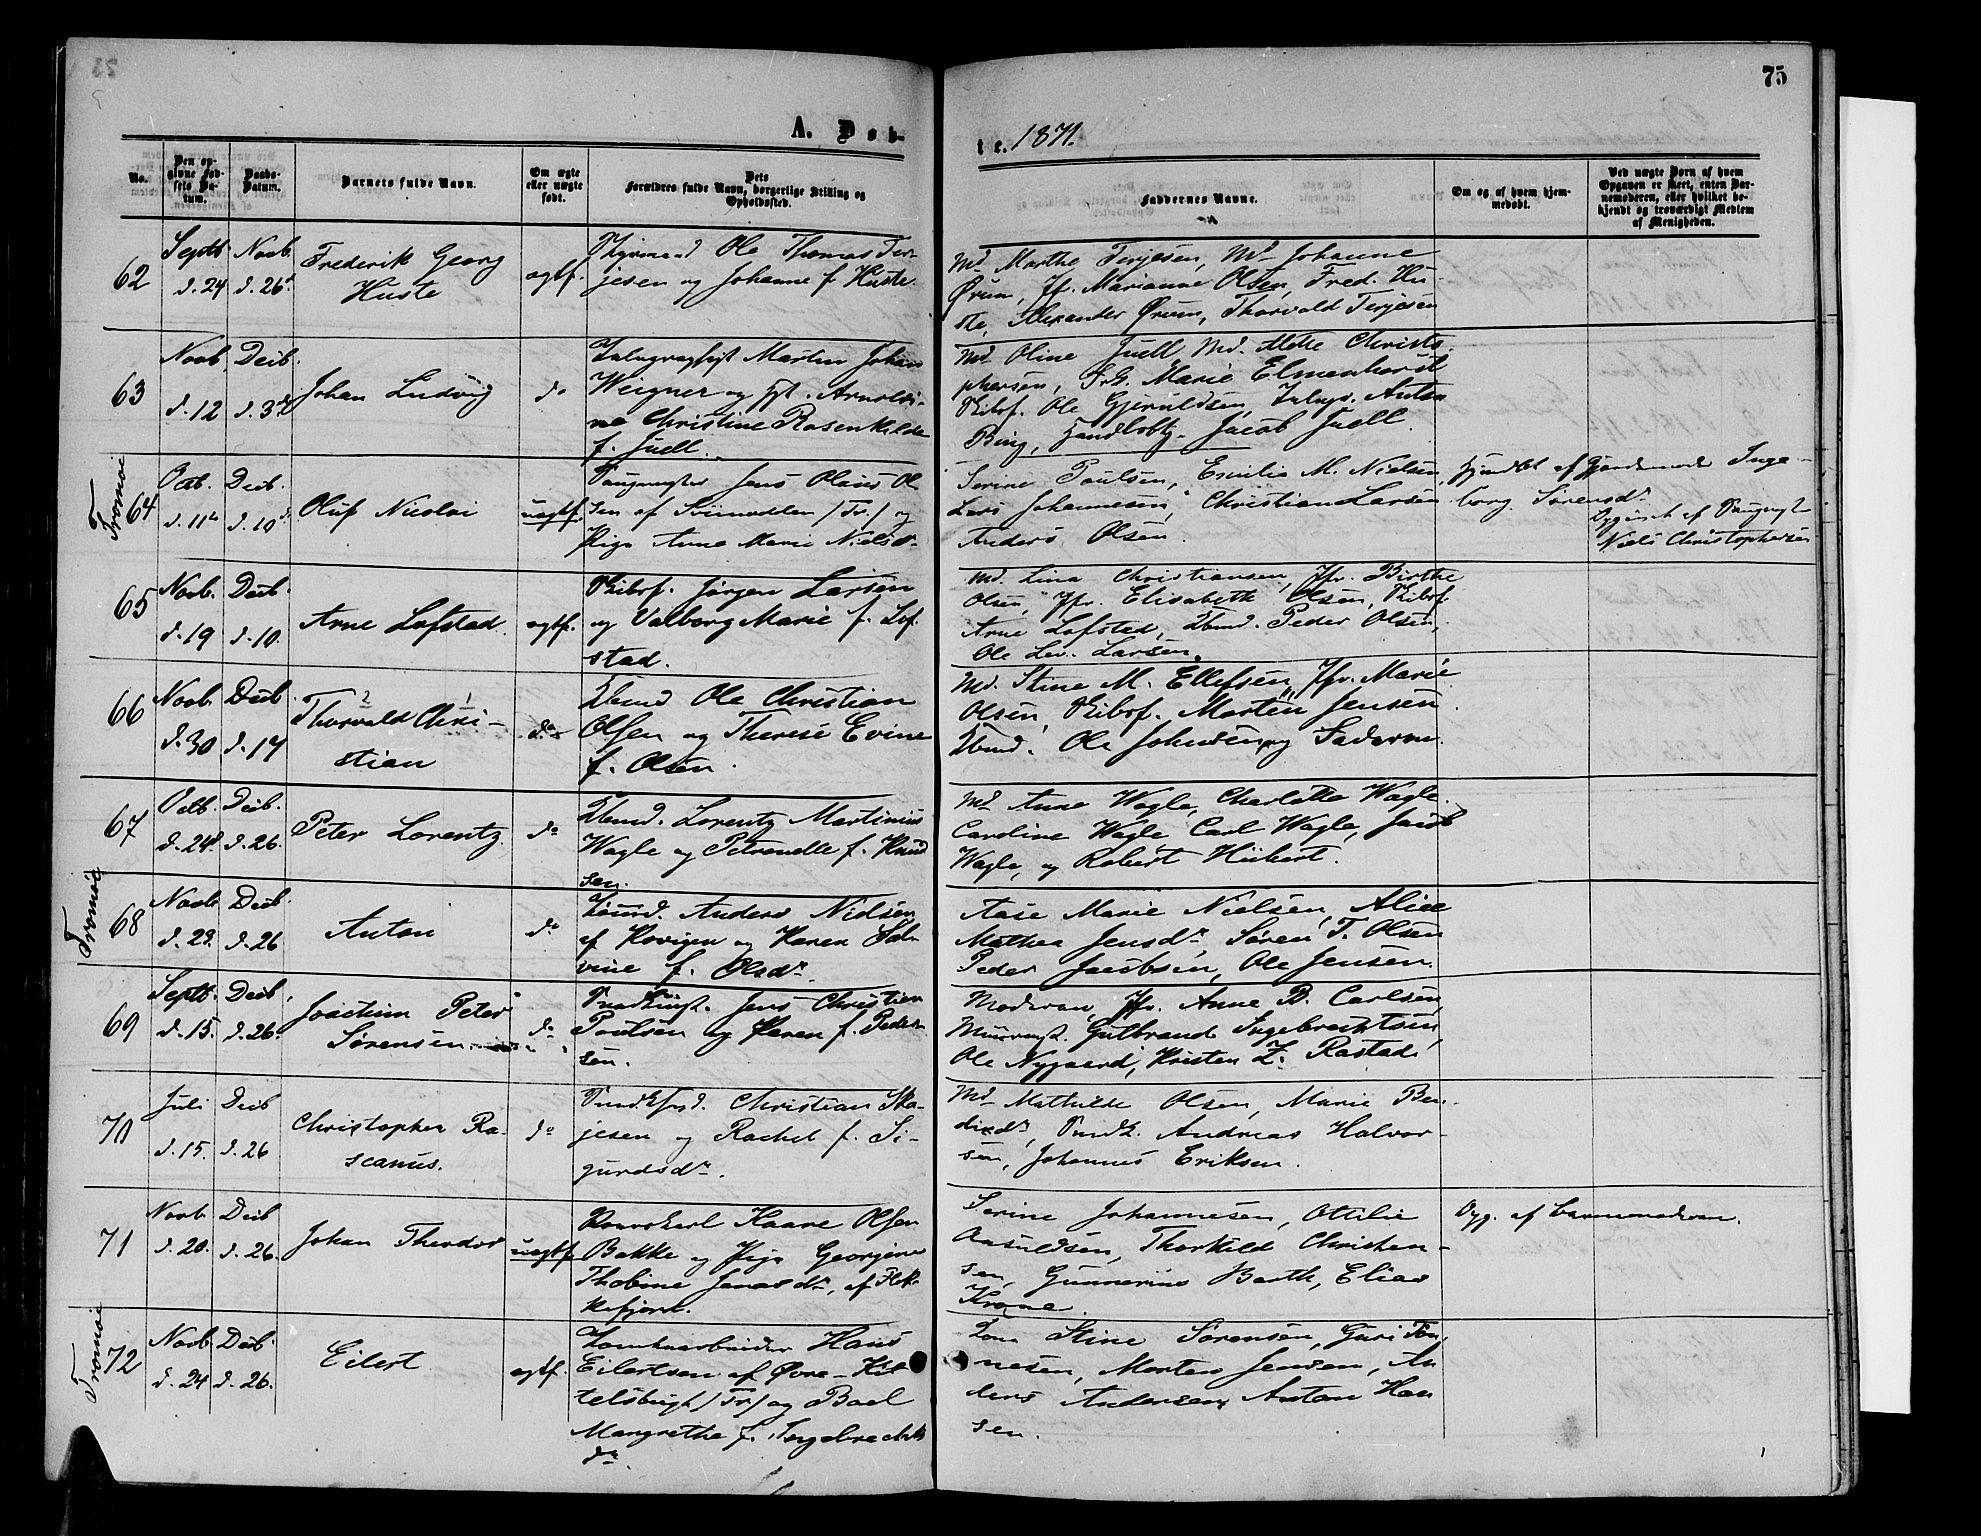 75
A. Døb-
te. 1871.
No.
Den op-
givne Fød-
sels Da-
tum.
Daabs-
Datum.
Barnets fulde Navn.
Om ægte
eller uægte
født.
Dets
Forældres fulde Navn, borgerlige Stilling og
Opholdssted.
Faddernes Navne.
Om og af hvem hjem-
medøbt.
Ved uægte Børn af hvem
Opgaven er skeet, enten Bar-
nemoderen, eller hvilket be-
kjendt og troværdigt Medlem
af Menigheden.
62
Septb. Novb.
d. 24 d. 26
Frederik Georg
Huste
ægtf.
Styrmand Ole Thomas Ter-
jesen og Johanne f. Huste
Md. Marthe Terjesen, Md. Johanne
Ørum, Jf. Marianne Olsen, Fred. Hu-
ste, Alexander Ørum, Thorvald Terjesen
63
Novb. Decb.
d. 12 d. 3
Johan Ludvig
do
Martin Johan
Weigner og Arnoldi-
ne Christine Rosenkilde
f. Juell.
Md. Oline Juell, Md. Mette Christo-
phersen, Frk. Marie Elmenhorst
Skibsf. Ole Gjeruldsen, Anton
Bing, Jacob Juell.
Tromøi
64
Octb. Decb.
d. 11 d. 10
Oluf Nicolai
uægtf.
Jens Olaus Ol-
sen af /Tr./ og
Pige Anne Marie Nielsdr.
Serine Poulsen, Emilie M. Nielsen,
Lars Johannesen, Christian Larsen
Anders Olsen.
Hjemdøbt af Gjordemoder Inge-
borg Sørensdr.
Opgivet af
Niels Christophersen
65
Novb. Decb.
d. 19 d. 10.
Arne Lofstad
ægtf.
Skibsf. Jørgen Larsen
og Valborg Marie f. Lof-
stad.
Md. Lina Christiansen, Jfr. Birthe
Olsen, Jfr. Elisabeth Olsen, Skibsf.
Arne Lofsted, Peder Olsen,
Ole Lev. Larsen.
66
Novb. Decb.
d. 30 d. 17
2 1
Thorvald Chri-
stian
do
Ole Christian
Olsen og Therese Evine
f. Olsen.
Md. Stine M. Ellefsen, Jfr. Marie
Olsen, Skibsf. Morten Jensen
Ole Johnsen og Faderen.
67
Octb. Decb.
d. 24 d. 26.
Peter Lorentz.
do
Lorentz Martinius
Wagle og Petronelle f. Knud
sen.
Md. Anne Wagle, Charlotte Wagle.
Caroline Wagle Carl Wagle, Jacob
Wagle, og Robert Hübert.
Tromøi
68
Novb. Decb.
d. 29. d. 26
Anton
do
Anders Nielsen
af Hovigen og Karen Sal-
vine f. Olsdr.
Aase Marie Nielsen, Alice
Mathea Jensdr, Søren T. Olsen
Peder Jacobsen, Ole Jensen.
69
Septb. Decb.
d. 15. d. 26.
Joachim Peter
Sørensen
do
Jens Christian
Poulsen og Karen f. Peder-
sen.
Moderen, Jfr. Anne B. Carlsen,
Murmst. Gulbrand Ingebrechtsen,
Ole Nygaard, Kristen Z. Rastad.
70
Juli Decb
d. 15. d. 26
Christopher Ra-
scanus.
do
Christian Ska-
jesen og Rachel f. Si-
gurdsdr.
Md. Mathilde Olsen, Marie Ben-
dixdr, Andreas Halvor-
sen, Johannes Eriksen.
71
Novb Decb
d. 20. d. 26.
Johan Theodor
uægtf.
Kaare Olsen
Bakke og Pige Georgine
Thobine Jonasdr, af Flek-
kefjord.
Serine Johannesen, Ottilie
Aasuldsen, Thorkild Christen-
sen, Gunnerius Barth, Elias
Krone.
Opg. af Barnemoderen.
Tromøi
72
Novb. Decb.
d. 24 d. 26.
Eilert
ægtf.
Tomtearbeider Hans
Eilertsen af Øvre-Kit-
telsbugt /Tr/ og Boel
Margrethe f. Ingebrechts
dr.
Kone Stine Sørensen, Guri Tøn-
nesen, Morten Jensen, An-
ders Andersen, Anton Han
sen.